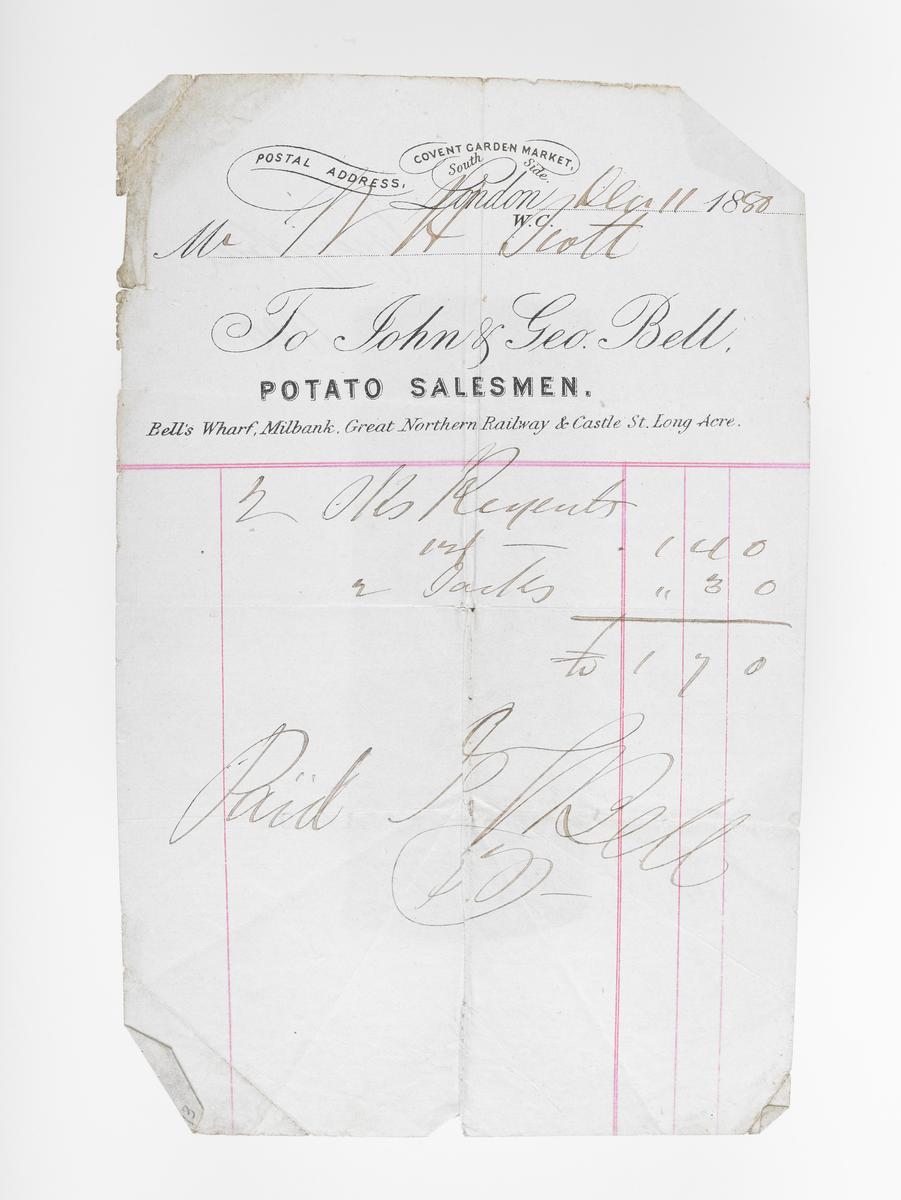 POSTAL ADDRESS,
COVENT GARDEN MARKET,
South Side.
London Dec 11 1880
W.C.
Mr W H Scott
To John & Geo. Bell,
POTATO SALESMEN.
Bell's Wharf, Milbank, Great Northern Railway & Castle St. Long Acre.
2 Regents
12/ — 1 4 0
2 Sacks " 3 0
1 7 0
Paid
Bell
3